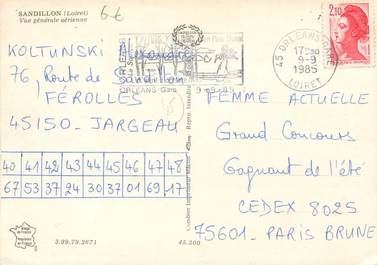 SANDILLON (Loiret)
Vue générale aérienne
6€
2,10
45 ORLEANS GARE
17H30
9-9
1985
LOIRET
ORLEANS Gare
9-09-85
KOLTUNSKI Alexandre
76, Route de Sandillon
FÉROLLES
45150 - JARGEAU
40 41 42 43 44 45 46 47 48
67 53 37 24 30 37 01 69 17
FEMME ACTUELLE
Grand Concours
Gagnant de l'été
CEDEX 8025
75601 - PARIS BRUNE
3.99.79.2671
45.300